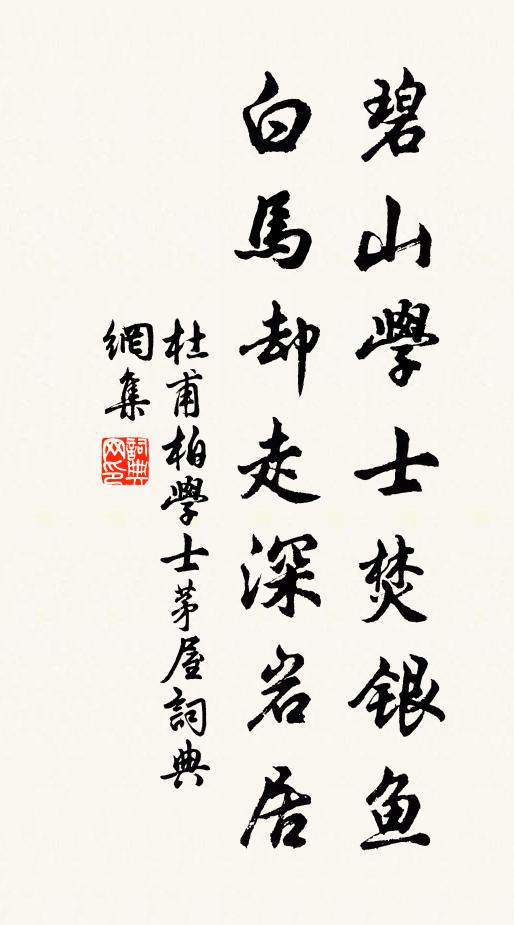 碧山學士焚銀鱼
白馬却走深岩居
杜甫柏學士茅屋詞典
網集
詞典网印